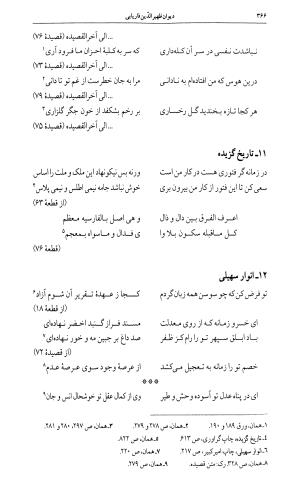 ۳۶۶ دیوان ظهیرالدّین فاریابی
...الی آخرالقصیده (قصیدهٔ ۷۶)
نباشدت نفسی در سر آن کله‌داری که سر به کلبهٔ احزان ما فرود آری۱
...الی آخرالقصیده (قصیدهٔ ۷۳)
درین هوس که من افتاده‌ام به نادانی مرا به جان خطرست از غم تو تا دانی۲
...الی آخرالقصیده (قصیدهٔ ۷۹)
هر کجا تازه بخندید گل رخساری بر رخم بشکفد از خون جگر گلزاری۳
...الی آخرالقصیده (قصیدهٔ ۷۵)
۱۱ـ تاریخ گزیده
در زمانه گر فتوری هست در کار من است ورنه بس نیکو نهاد این ملک و ملت را اساس
سعی کن تا این فتور از کار من بیرون بری خوش نباشد جامه نیمی اطلس و نیمی پلاس۴
(از قطعهٔ ۶۳)
اعرف الفرق بین دال و ذال و هی اصل بالفارسیه معظم
کل ماقبله سکون بلا وا ی فدال و ماسواه بمعجم۵
(قطعهٔ ۷۶)
۱۲ـ انوار سهیلی
تو فرض کن که چو سوسن همه زبان گردم کجا ز عهدهٔ تقریر آن شوم آزاد۶
(از قطعهٔ ۱۸)
ای خسرو زمانه که از روی معدلت مسند فراز گنبد اخضر نهاده‌ای
بر ابلق سپهر تو را رام کرده‌اند صد داغ بر جبین مه و خور نهاده‌ای۷
(از قصیدهٔ ۷۲)
خصم تو را زمانه به تعجیل می‌کشد از عرصهٔ وجود سوی عرصهٔ عدم۸
***
ای در پناه عدل تو آسوده وحش و طیر وی از کمال عقل تو خوشحال انس و جان۹
۱ـ همان، ورق ۱۸۹ و ۱۹۰. ۲ـ همان، ص ۲۷۸ و ۲۷۹. ۳ـ همان، ص ۲۹۷، ۲۸۰ و ۲۸۱.
۴ـ تاریخ گزیده چاپ گراوری، ص ۶۱۳. ۵ـ همان، ص ۸۲۲.
۶ـ انوار سهیلی، چاپ امیرکبیر، ص ۲۱۷. ۷ـ همان، ص ۲۲۰.
۸ـ همان، ص ۳۲۸، رک: متن قصیده. ۹ـ همان، ص ۲۷۹.